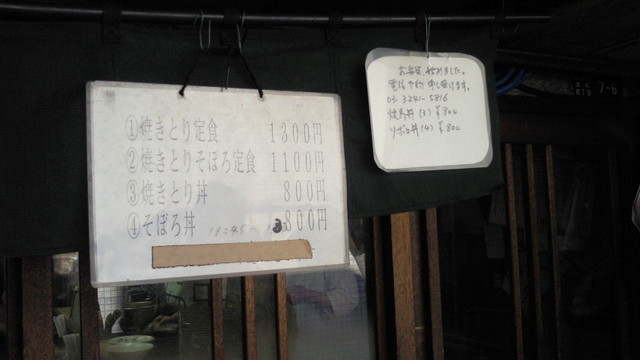 ①焼きとり定食 1300円
②焼きとりそぼろ定食 1100円
③焼きとり丼 800円
④そぼろ丼 800円
お弁当、始めました。
電話予約 申し受けます。
03-3241-5816
焼鳥丼(3) ¥800
ソボロ丼(4) ¥800
7-6